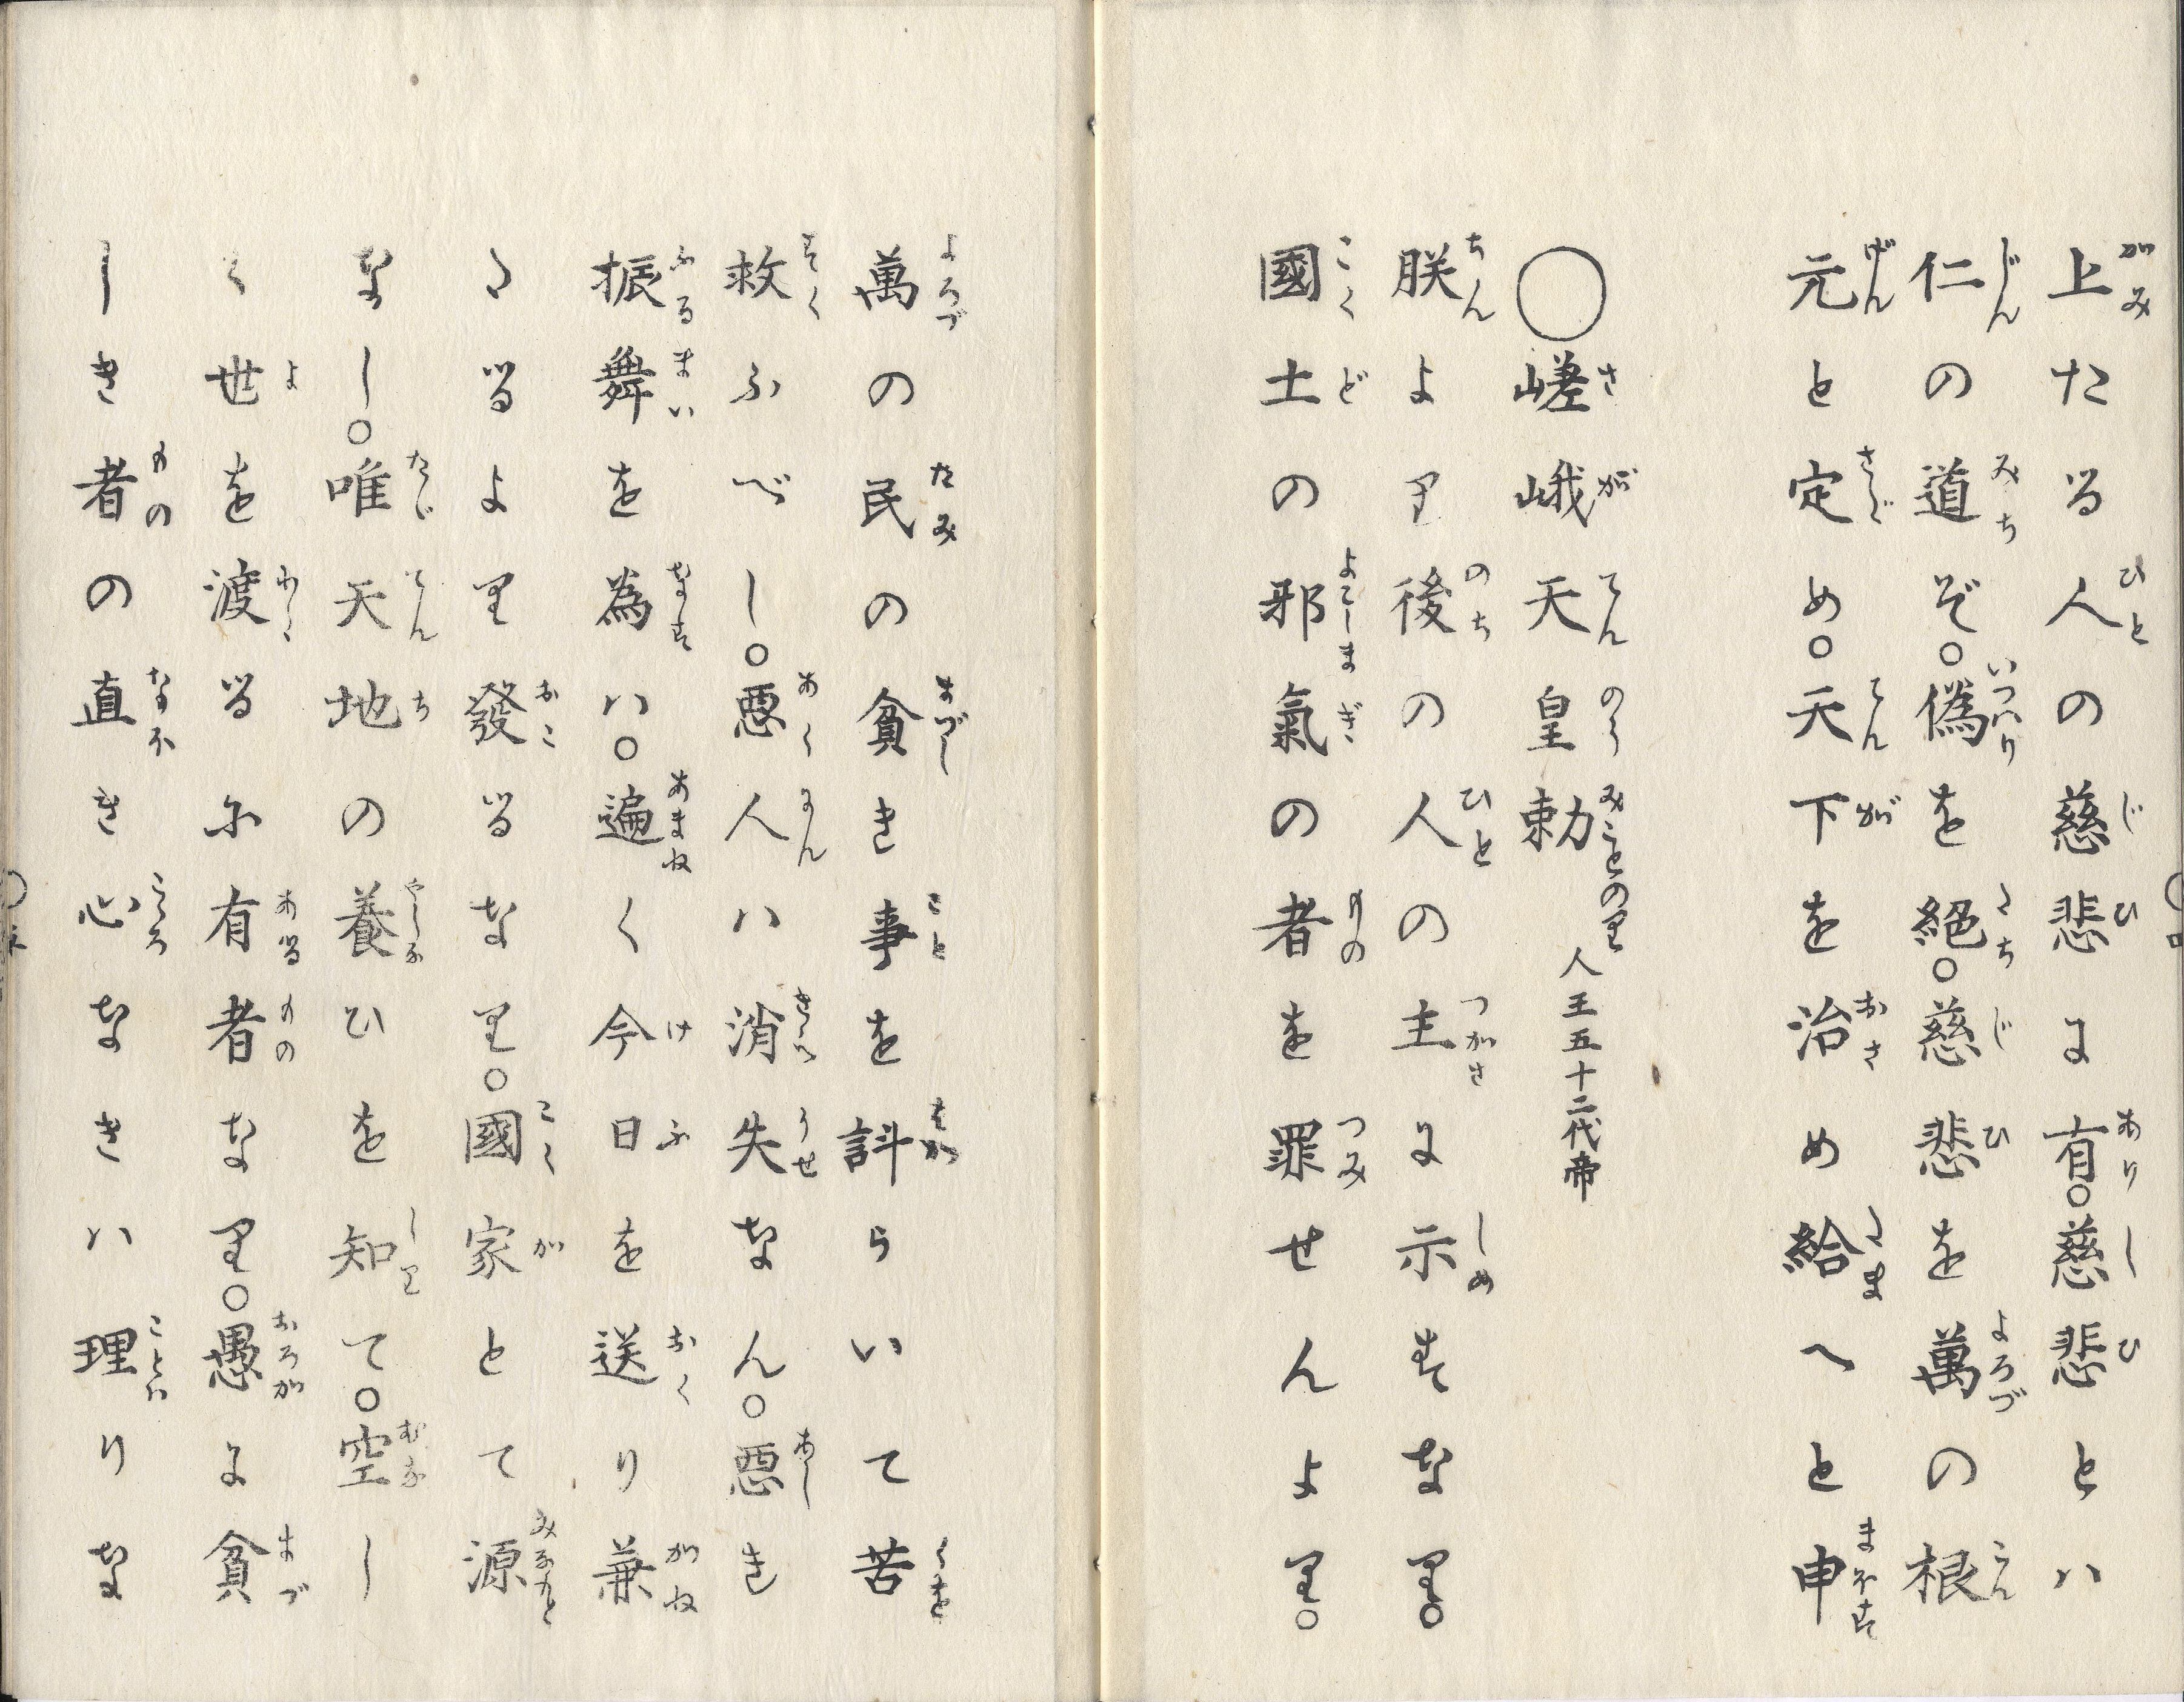 上たる人の慈悲に有。慈悲とハ
仁の道ぞ。偽を絶。慈悲を萬の根
元と定め。天下を治め給へと申
〇嵯峨天皇勅 人王五十二代帝
朕より後の人の主に示すなり。
國土の邪氣の者を罪せんより。
萬の民の貧き事を計らいて苦
救ふべし。悪人ハ消失なん。悪き
振舞を為ハ。遍く今日を送り兼
たるより發るなり。國家とて源
なし。唯天地の養ひを知て。空し
く世を渡るに有者なり。愚に貧
しき者の直き心なきハ理りな